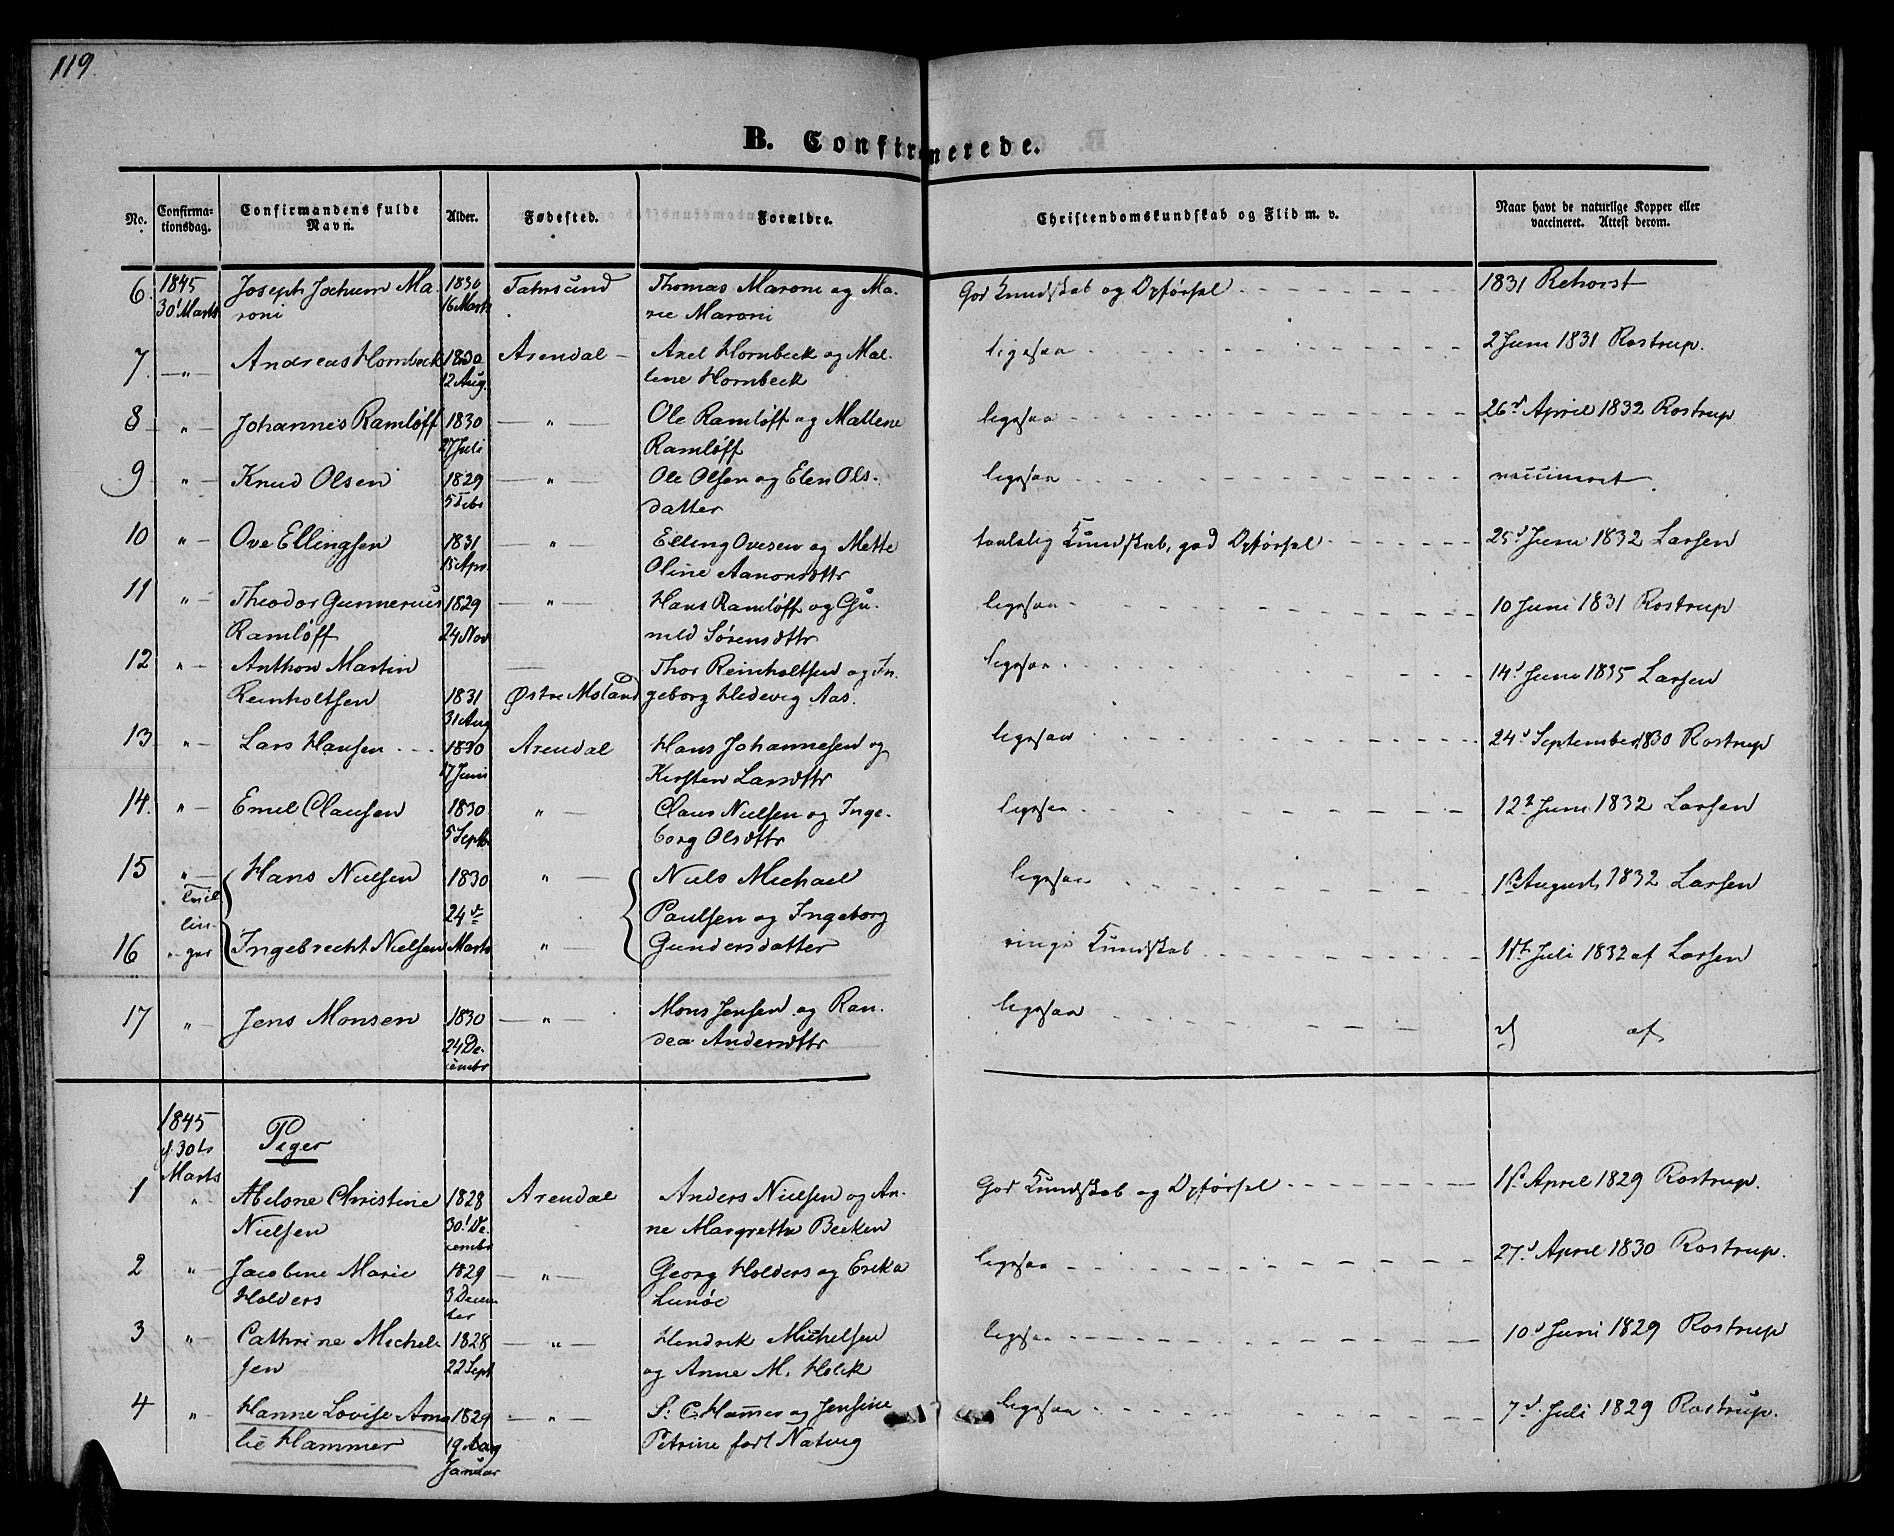 119.
B. Confirmerede.
No.
Confirma-
tionsdag.
Confirmandens fulde
Navn.
Alder.
Fødested.
Forældre.
Christendomskundskab og Flid m. v.
Naar havt de naturlige Kopper eller
vaccineret. Attest derom.
6 1845 Joseph Jochum Ma- 1830 Fahrsund Thomas Maroni og Ma- God Kundskab og Opførsel 1831 Rehorst
30' Marts roni 16 Marts rie Maroni
7. -"- Andreas Hornbeck 1830 Arendal - Axel Hornbeck og Mal- ligesaa 2 Juni 1831 Rostrup.
12 Aug. lene Hornbeck
8 "- Johannes Ramløff 1830 -"- Ole Ramløff og Mallene ligesaa 26d April 1832 Rostrup
27 Juli Ramløff
9 "- Knud Olsen 1829 -"- Ole Olsen og Elen Ols- ligesaa vaccineret.
5 Febr datter
10 "- Ove Ellingsen 1831 -"- Elling Ovesen og Mette taalelig Kundskab, god Opførsel 25d Juni 1832 Larsen
15 Apr. Oline Aanonsdttr
11 "- Theodor Gunnerius 1829 -"- Hans Ramløff og Gu- ligesaa 10 Juni 1831 Rostrup
Ramløff 24 Nov nild Sørensdttr
12 "- Anthon Martin Thor Reinholtsen og In- ligesaa 14d Juni 1835 Larsen
Reinholtsen 1831 Østre Moland geborg Hedevig Aas.
31 Aug
13 "- Lars Hansen 1830 Arendal Hans Johannesen og ligesaa 24d September 1830 Rostrup
17 Juni Kirsten Larsdttr
14. "- Emil Clausen 1830 "- Claus Nielsen og Inge- ligesaa 12te Juni 1832 Larsen
5 Septbr borg Olsdttr
15 "- Hans Nielsen 1830 "- Niels Michael ligesaa August 1832 Larsen
Tvil
lin- 24de Paulsen og Ingeborg
16 ger Ingebrecht Nielsen Marts "- Gundersdatter ringe Kundskab Juli 1832 af Larsen
17 "- Jens Monsen 1830 -"- Mons Jensen og Ran- ligesaa af
24 De- dea Andersdttr
cembr
1845
d. 30te Piger
Marts
1 " Abelone Christine 1828 Arendal Anders Nielsen og An- God Kundskab og Opførsel April 1829 Rostrup.
Nielsen 30' De- ne Margrethe Beeken
cembr
2 "- Jacobine Marie 1829 -"- Georg Holders og Erika ligesaa 27d April 1830 Rostrup.
Holders 3 Decem- Lunøe
ber
3 "- Cathrine Michel- 1828 -"- Hendrik Michelsen ligesaa 10d Juni 1829 Rostrup
sen 22 Sept og Anne M. Holck
4 "- Hanne Lovise Ama- 1829 -"- S: C. Hammer og Jensine ligesaa 7d Juli 1829 Rostrup.
lie Hammer 19 Petrine født Natvig
Januar